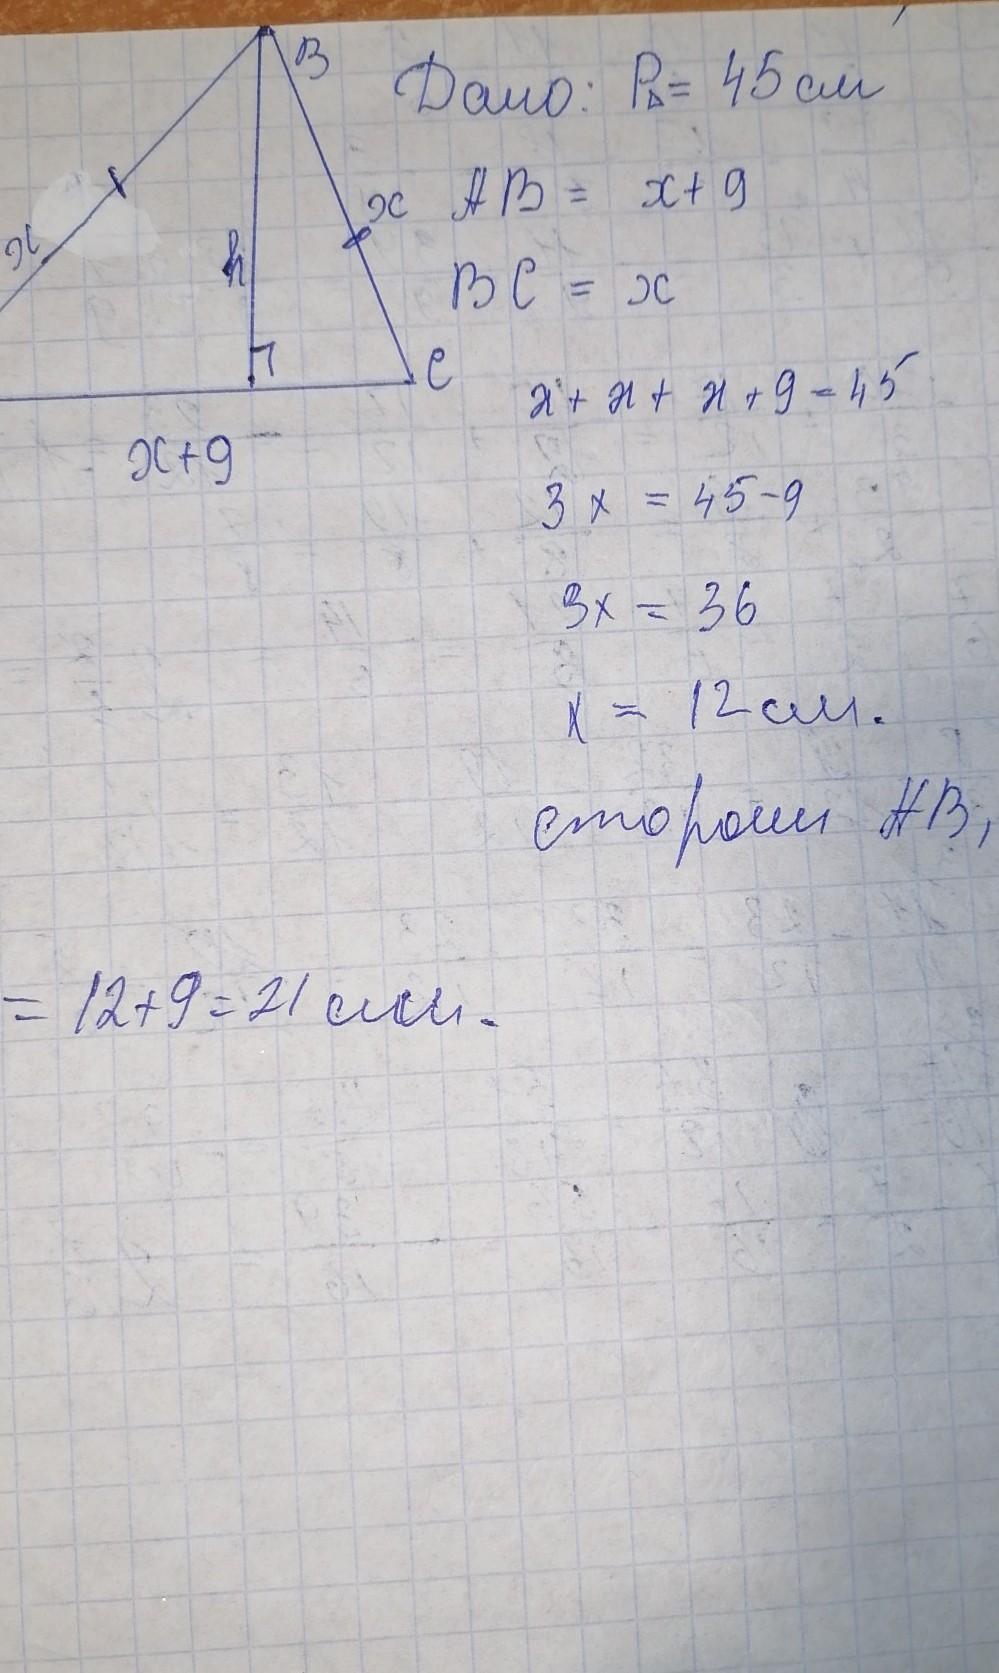 B
Дано: P△ = 45 см
x
x
AB = x+9
h
BC = x
C
x + x + x + 9 = 45
x+9
3x = 45-9
3x = 36
x = 12 см.
сторони AB,
= 12+9=21 см.